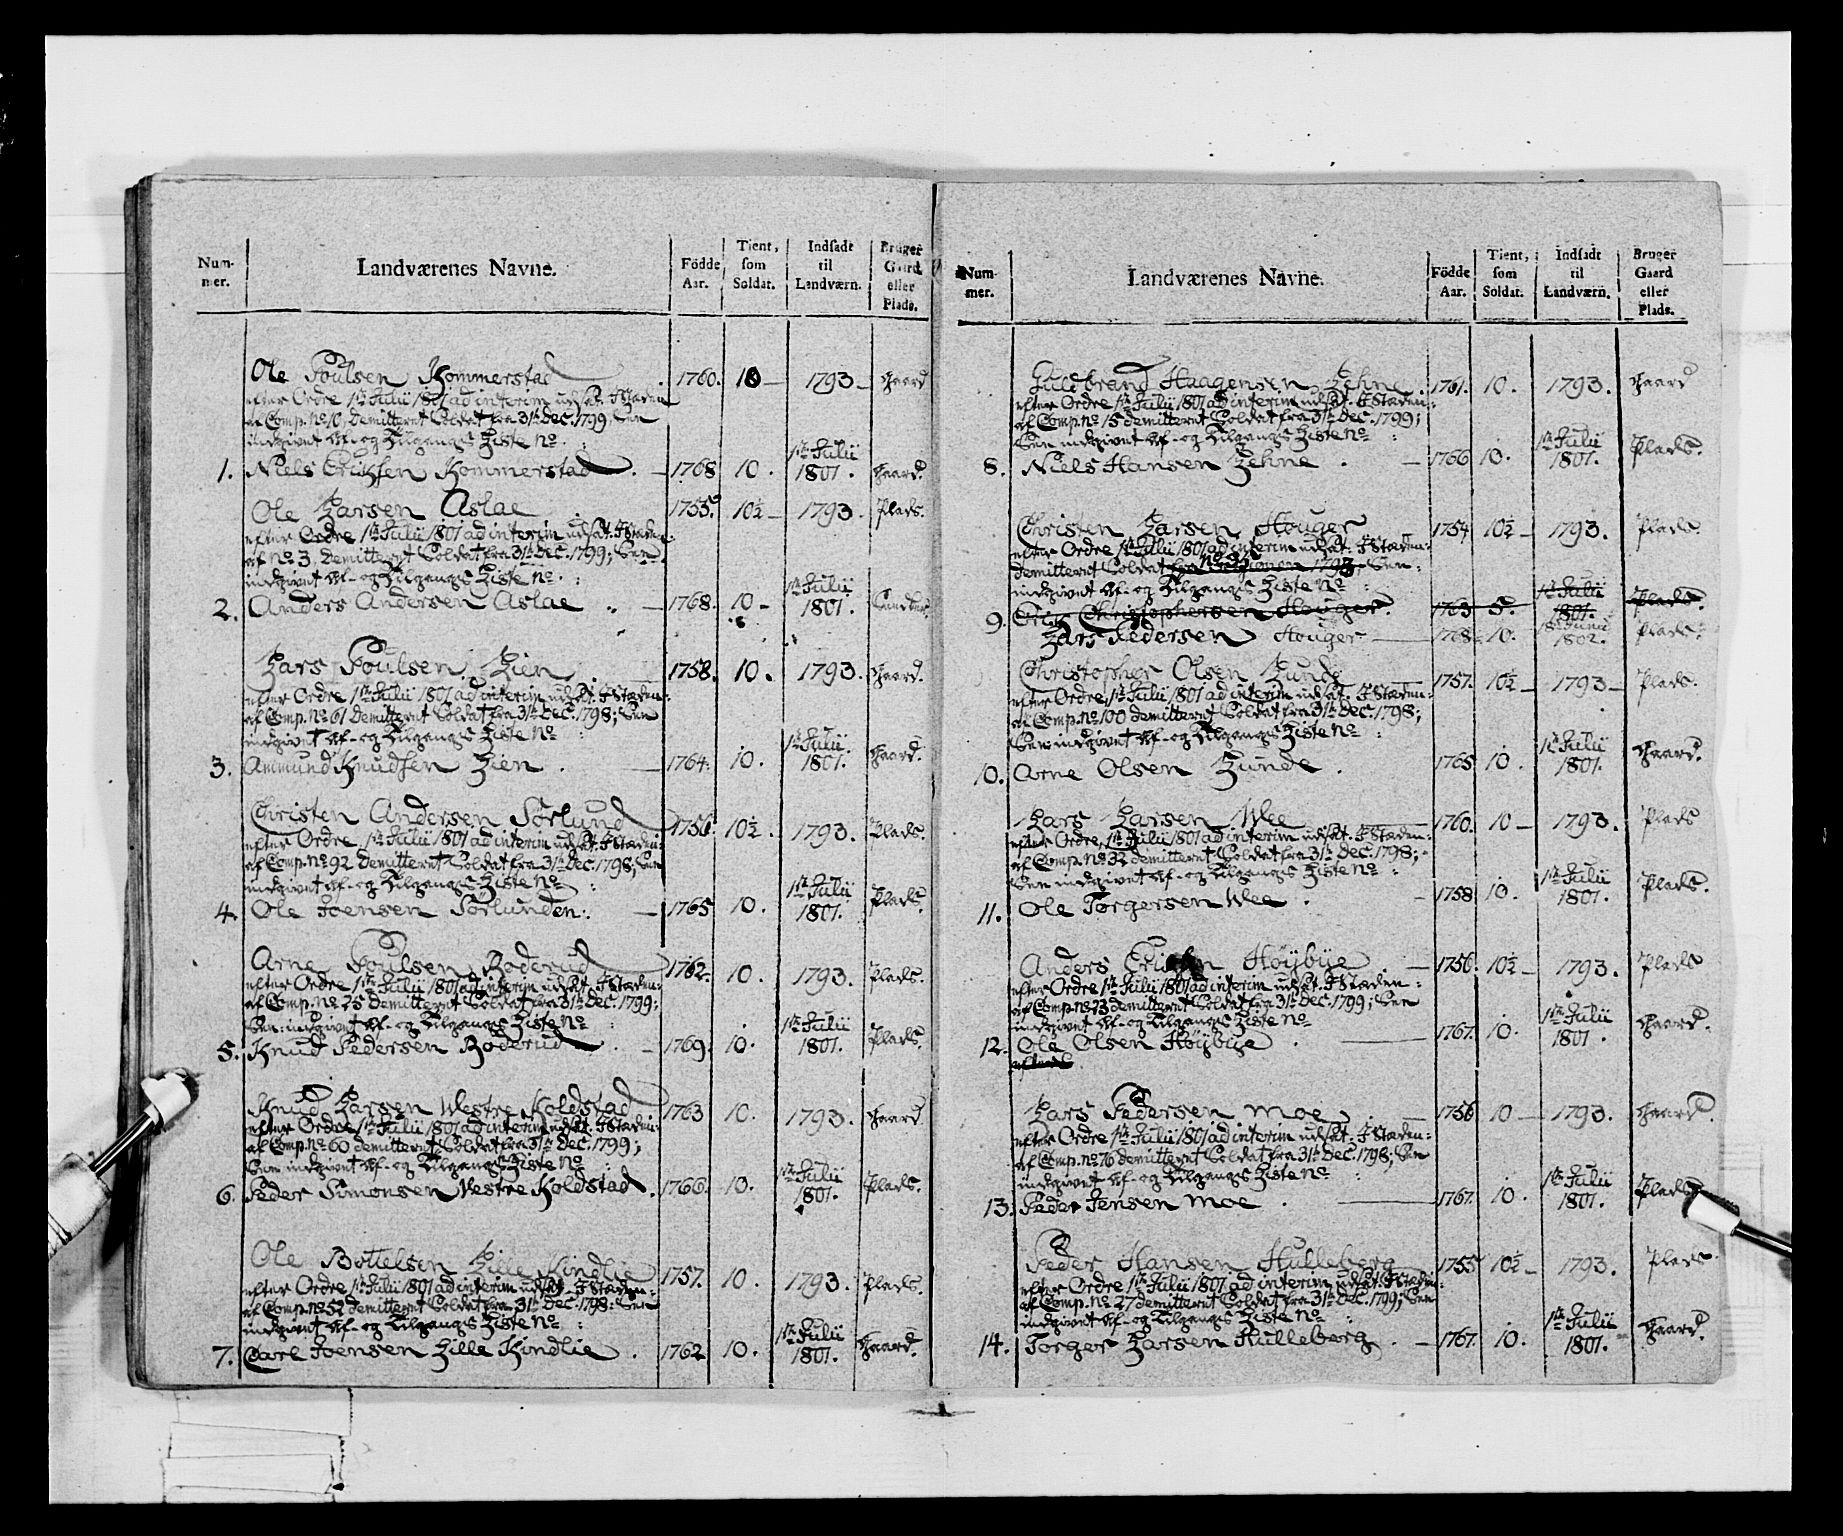 Num-
mer.
Landværenes Navne.
Födde
Aar.
Tient,
som
Soldat.
Indsadt
til
Landværn.
Bruger
Gaard
eller
Plads.
Ole Poulsen Kommerstad 1760. 10 1793 Gaard
efter Ordre 1te Julii 1801 ad interim udsat. J Stæden
af Comp. No 10, Demitteret Soldat fra 31te Dec. 1799 See
indgivet Af- og Tilgangs Liste No
1. Niels Erichsen Kommerstad. 1768 10. 1te Julii 1801. Gaard.
Ole Larsen Aslae 1755. 10½ 1793. Plads.
efter Ordre 1te Julii 1801 ad interim udsat. J Stæden
af No 3, Demitteret Soldat fra 31te Dec. 1799; See
indgivet Af- og Tilgangs Liste No
2. Anders Andersen Aslae 1768. 10 1te Julii 1801.
Lars Poulsen Lien 1758. 10. 1793. Gaard.
efter Ordre 1te Julii 1801 ad interim udsat. J Stæden:
af Comp. No 61 Demitteret Soldat fra 31te Dec. 1798; See
indgivet Af- og Tilgangs Liste No
3. Ammund Knudsen Lien. 1764. 10. 1te Julii 1801. Gaard.
Christen Andersen Sörlund 1756. 10½. 1793. Plads.
efter Ordre 1te Julii 1801 ad interim udsat. J Stæden:
af Comp. No 92 Demitteret Soldat fra 31te Dec. 1798; See
indgivet Af- og Tilgangs Liste No
4. Ole Joensen Sörlunden. 1765 10. 1te Julii 1801. Plads.
Arne Poulsen Boderud 1762. 10. 1793. Plads.
efter Ordre 1te Julii 1801 ad interim udsat. J Stæden:
af Comp. No 25 Demitteret Soldat fra 31te Dec. 1799;
See indgivet Af- og Tilgangs Liste No
5. Knud Pedersen Boderud. 1769. 10. 1te Julii 1801. Plads.
Knud Larsen Westre Koldstad 1763 10. 1793. Gaard
efter Ordre 1te Julii 1801 ad interim udsat. J Stæden:
af Comp. No 60 demitteret Soldat fra 31te Dec. 1799;
See indgivet Af- og Tilgangs Liste No
6. Peder Simonsen Westre Koldstad. 1766. 10. 1te Julii 1801. Plads.
Ole Bottelsen Lille Kindlie 1757. 10. 1793. Plads.
efter Ordre 1te Julii 1801 ad interim udsat. J Stæden:
af Comp. No 52 demitteret Soldat fra 31te Dec. 1798: See
indgivet Af- og Tilgangs Liste No
7. Carl Joensen Lille Kindlie. 1762 10. 1te Julii 1801. Gaard.
Num-
mer.
Landværenes Navne.
Födde
Aar.
Tient,
som
Soldat.
Indsadt
til
Landværn.
Bruger
Gaard
eller
Plads.
Guldbrand Haagensen Lehne. 1761. 10. 1793. Gaard
efter Ordre 1te Julii 1801 ad interim udsat. J Stæden:
af Comp. No 15 demitteret Soldat fra 31te Dec. 1799;
See indgivet Af- og Tilgangs Liste No
8. Niels Hansen Lehne. 1766 10. 1te Julii 1801. Plads.
Christen Larsen Houger 1754 10½ 1793. Plads.
efter Ordre 1te Julii 1801 ad interim udsat. J Stæden:
demitteret Soldat fra 1793. See
indgivet Af- og Tilgangs Liste No
9. Eric Christophersen Houger. 1763 5. 1te Julii 1801. Plads.
Lars Pedersen Houger 1768 10. 1802. Plads.
Christopher Olsen Lunde 1757. 10½ 1793 Plads.
efter Ordre 1te Julii 1801 ad interim udsat. J Stæden:
af Comp. No 100 demitteret Soldat fra 31te Dec. 1798;
See indgivet Af- og Tilgangs Liste No
10. Arne Olsen Lunde. 1765 10. 1te Julii 1801. Gaard.
Lars Larsen Wee 1760. 10 1793. Plads
efter Ordre 1te Julii 1801 ad interim udsat. J Stæden:
af Comp. No 32 demitteret Soldat fra 31te Dec. 1798;
See indgivet Af- og Tilgangs Liste No
11. Ole Torgersen Wee. 1758 10. 1te Julii 1801. Plads.
Anders Höybye 1756. 10½ 1793. Plads
efter Ordre 1te Julii 1801 ad interim udsat. J Stæden:
af Comp. No 23 demitteret Soldat fra 31te Dec. 1799; See
indgivet Af- og Tilgangs Liste No
12. Ole Olsen Höybye. 1767. 10. 1te Julii 1801. Gaard.
Lars Pedersen Moe. 1756 10 1793. Gaard.
efter Ordre 1te Julii 1801 ad interim udsat. J Stæden:
af Comp. No 76 demitteret Soldat fra 31te Dec. 1798; See
indgivet Af- og Tilgangs Liste No
13. Peder Jensen Moe. 1767. 10. 1te Julii 1801. Plads
Peder Hansen Hulleberg 1755 10½ 1793. Plads.
efter Ordre 1te Julii 1801 ad interim udsat. J Stæden:
af Comp. No 27 demitteret Soldat fra 31te Dec. 1799; See
indgivet Af- og Tilgangs Liste No
14. Torger Larsen Hulleberg. 1767. 10. 1te Julii 1801. Gaard.